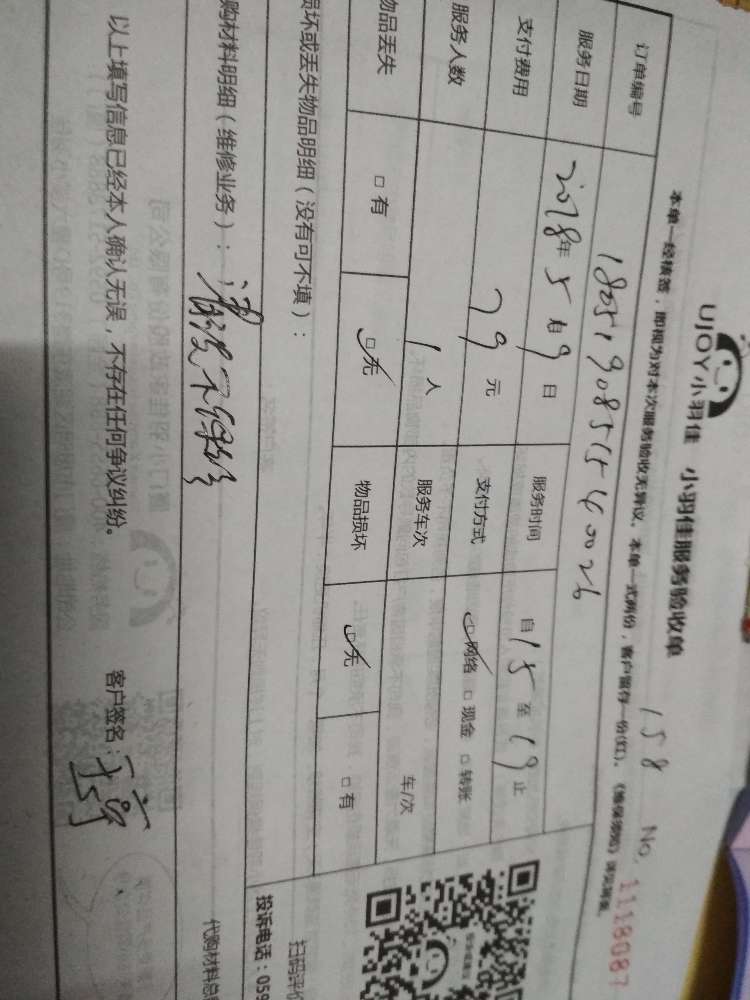 UJOY小羽佳 小羽佳服务验收单
158 NO. 11118087
本单一经核签，即视为对本次服务验收无异议。本单一式两份，客户留存一份(红)。
订单编号
服务日期 2018年5月9日 服务时间 自15至19止
支付费用 79元 支付方式 网络 □现金 □转账
服务人数 1人 服务车次 车/次
物品丢失 □有 □无 物品损坏 □无 □有
损坏或丢失物品明细（没有可不填）：
购材料明细（维修业务）：
代购材料总
扫码评价
投诉电话：059
以上填写信息已经本人确认无误，不存在任何争议纠纷。 客户签名：